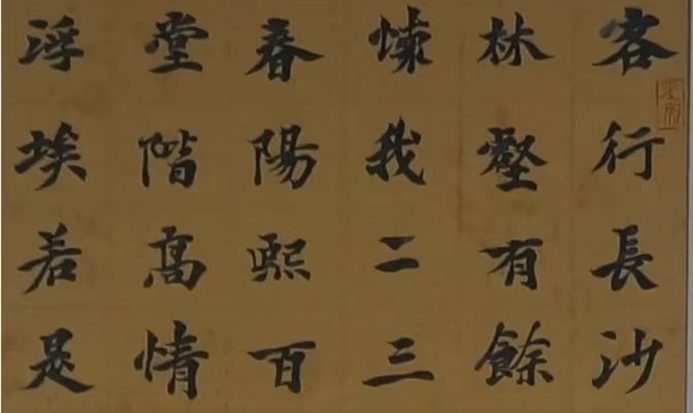 客行長沙
林壑有餘
悚我二三
春陽熙百
堂階高情
浮埃若是